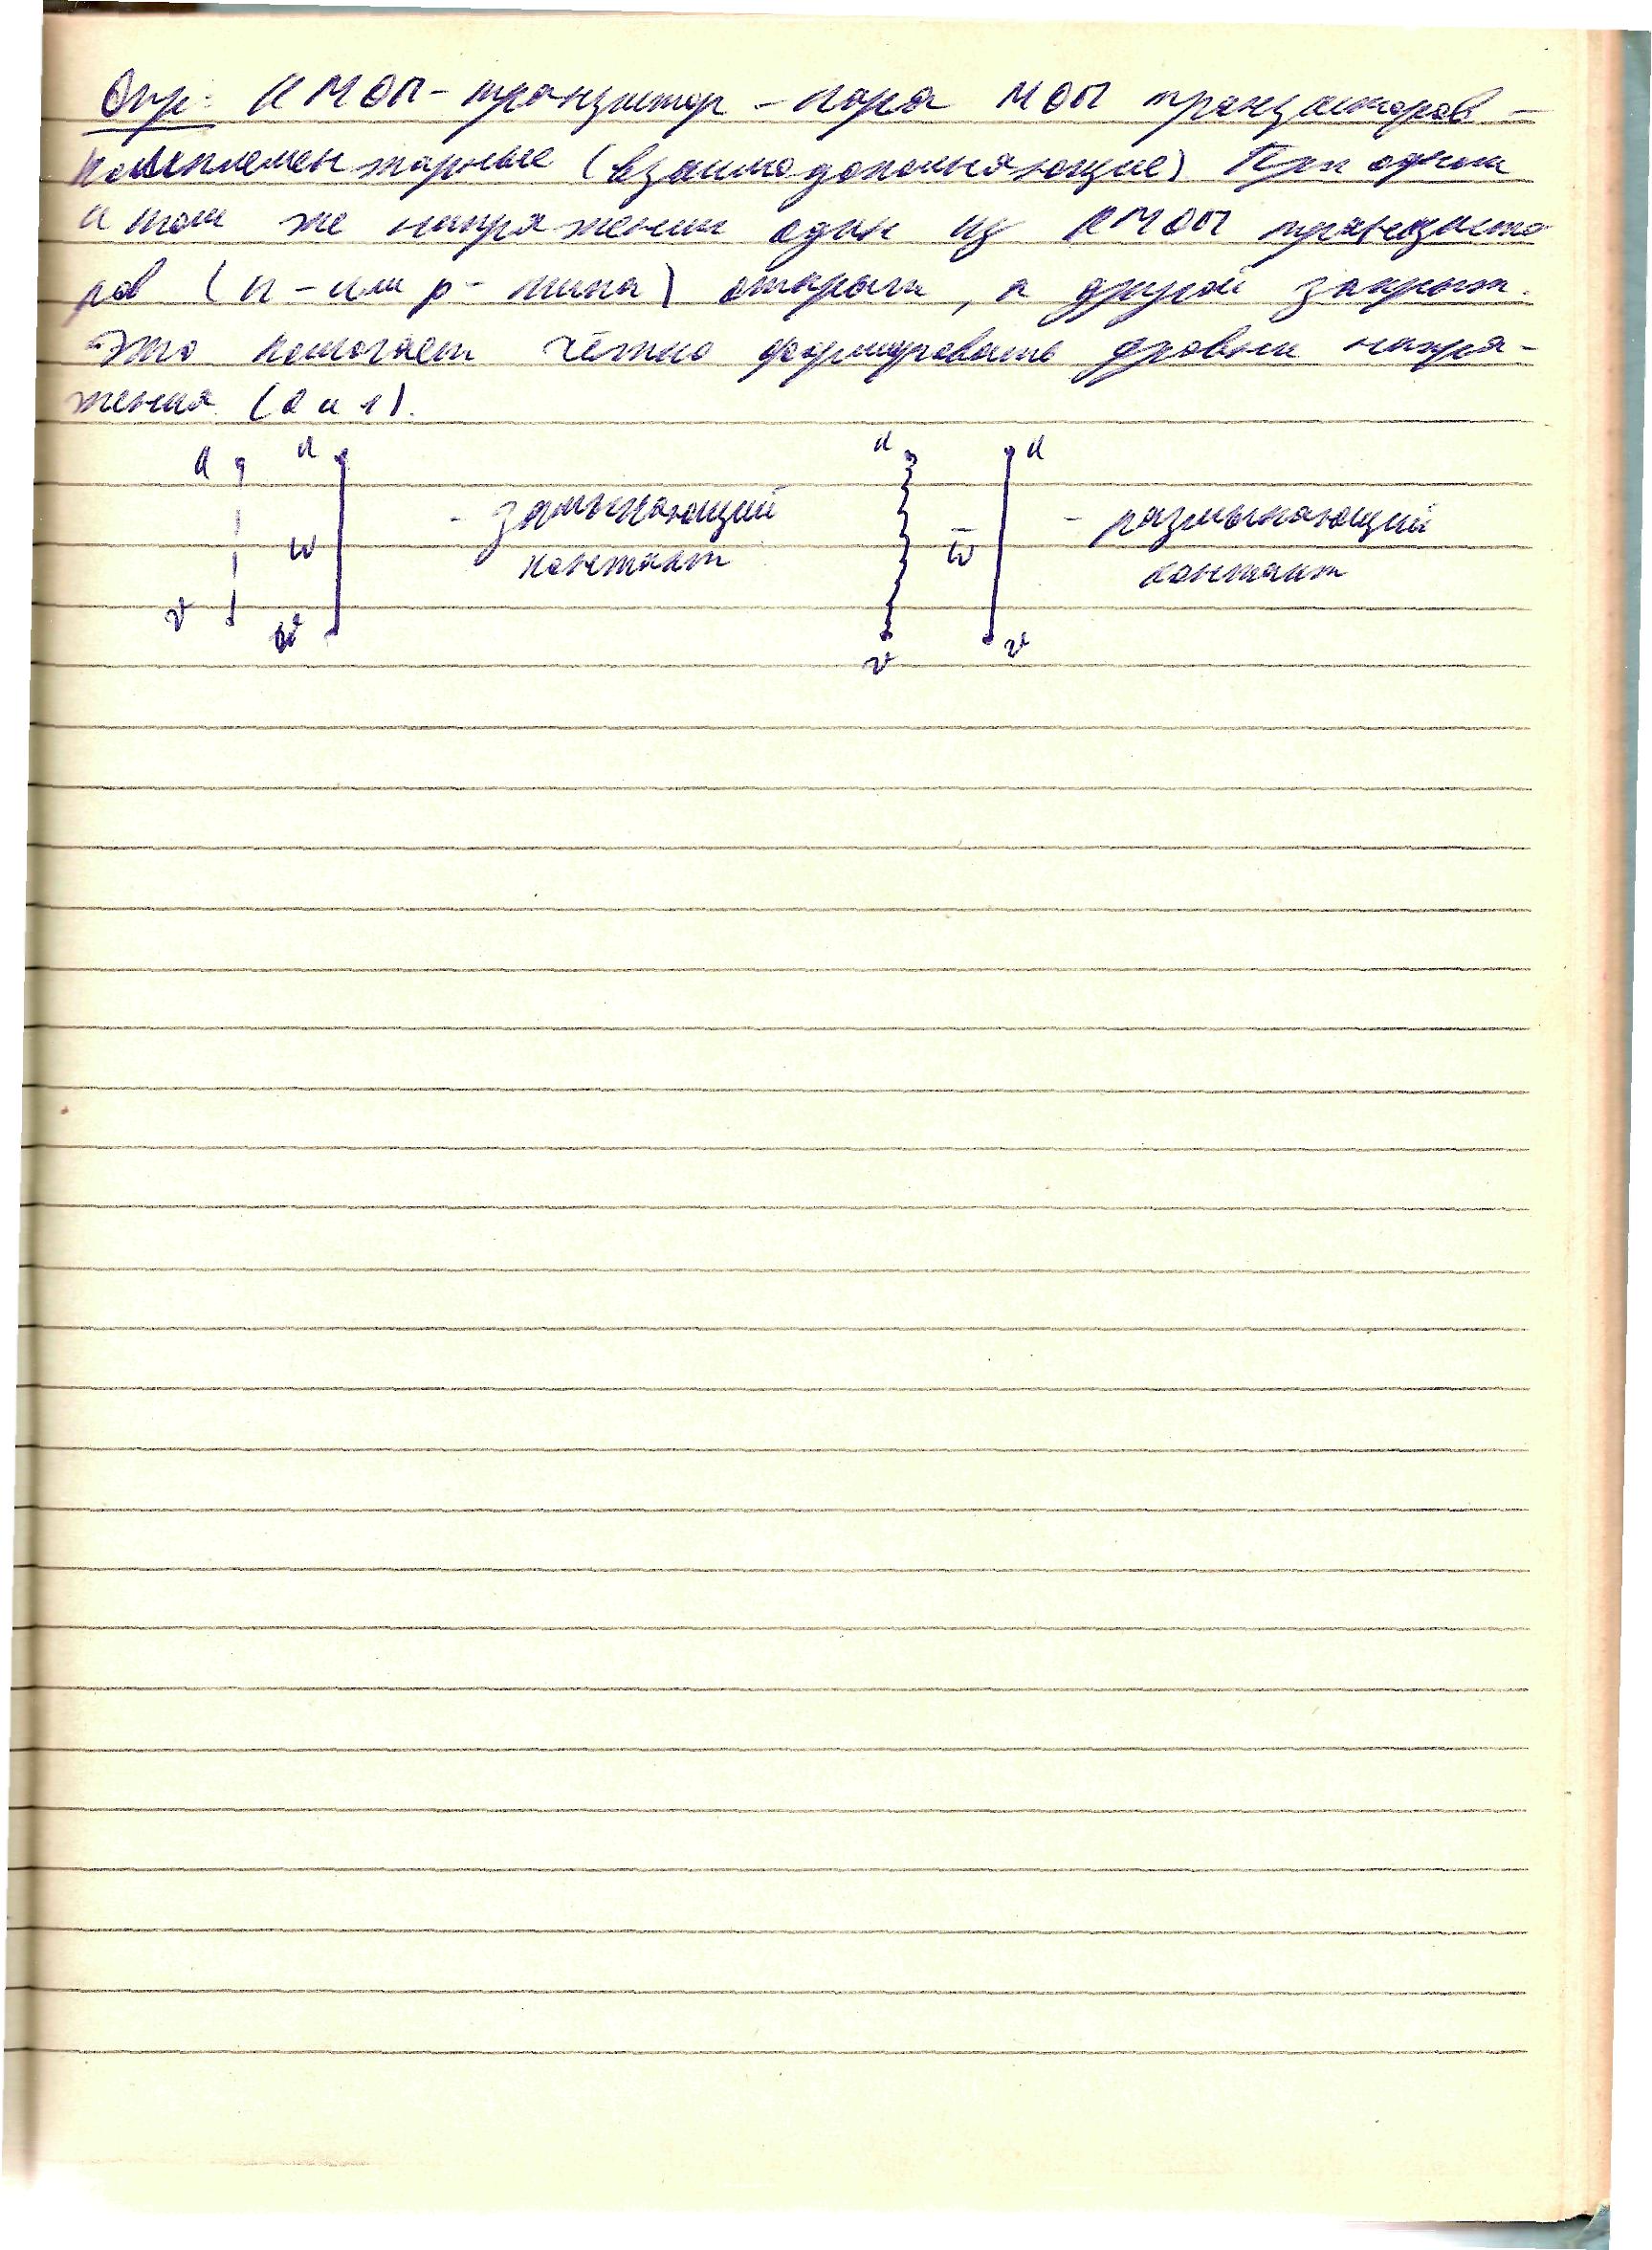 Опр: КМОП-транзистор - пара МОП транзисторов -
комплементарные (взаимодополняющие) При одном
и том же напряжении один из КМОП транзисто
ров (n - или p - типа) открыт, а другой закрыт.
Это помогает чётко формировать уровни напря-
жения (0 и 1).
u u u u
- замыкающий - размыкающий
w w̄
контакт контакт
v v v v